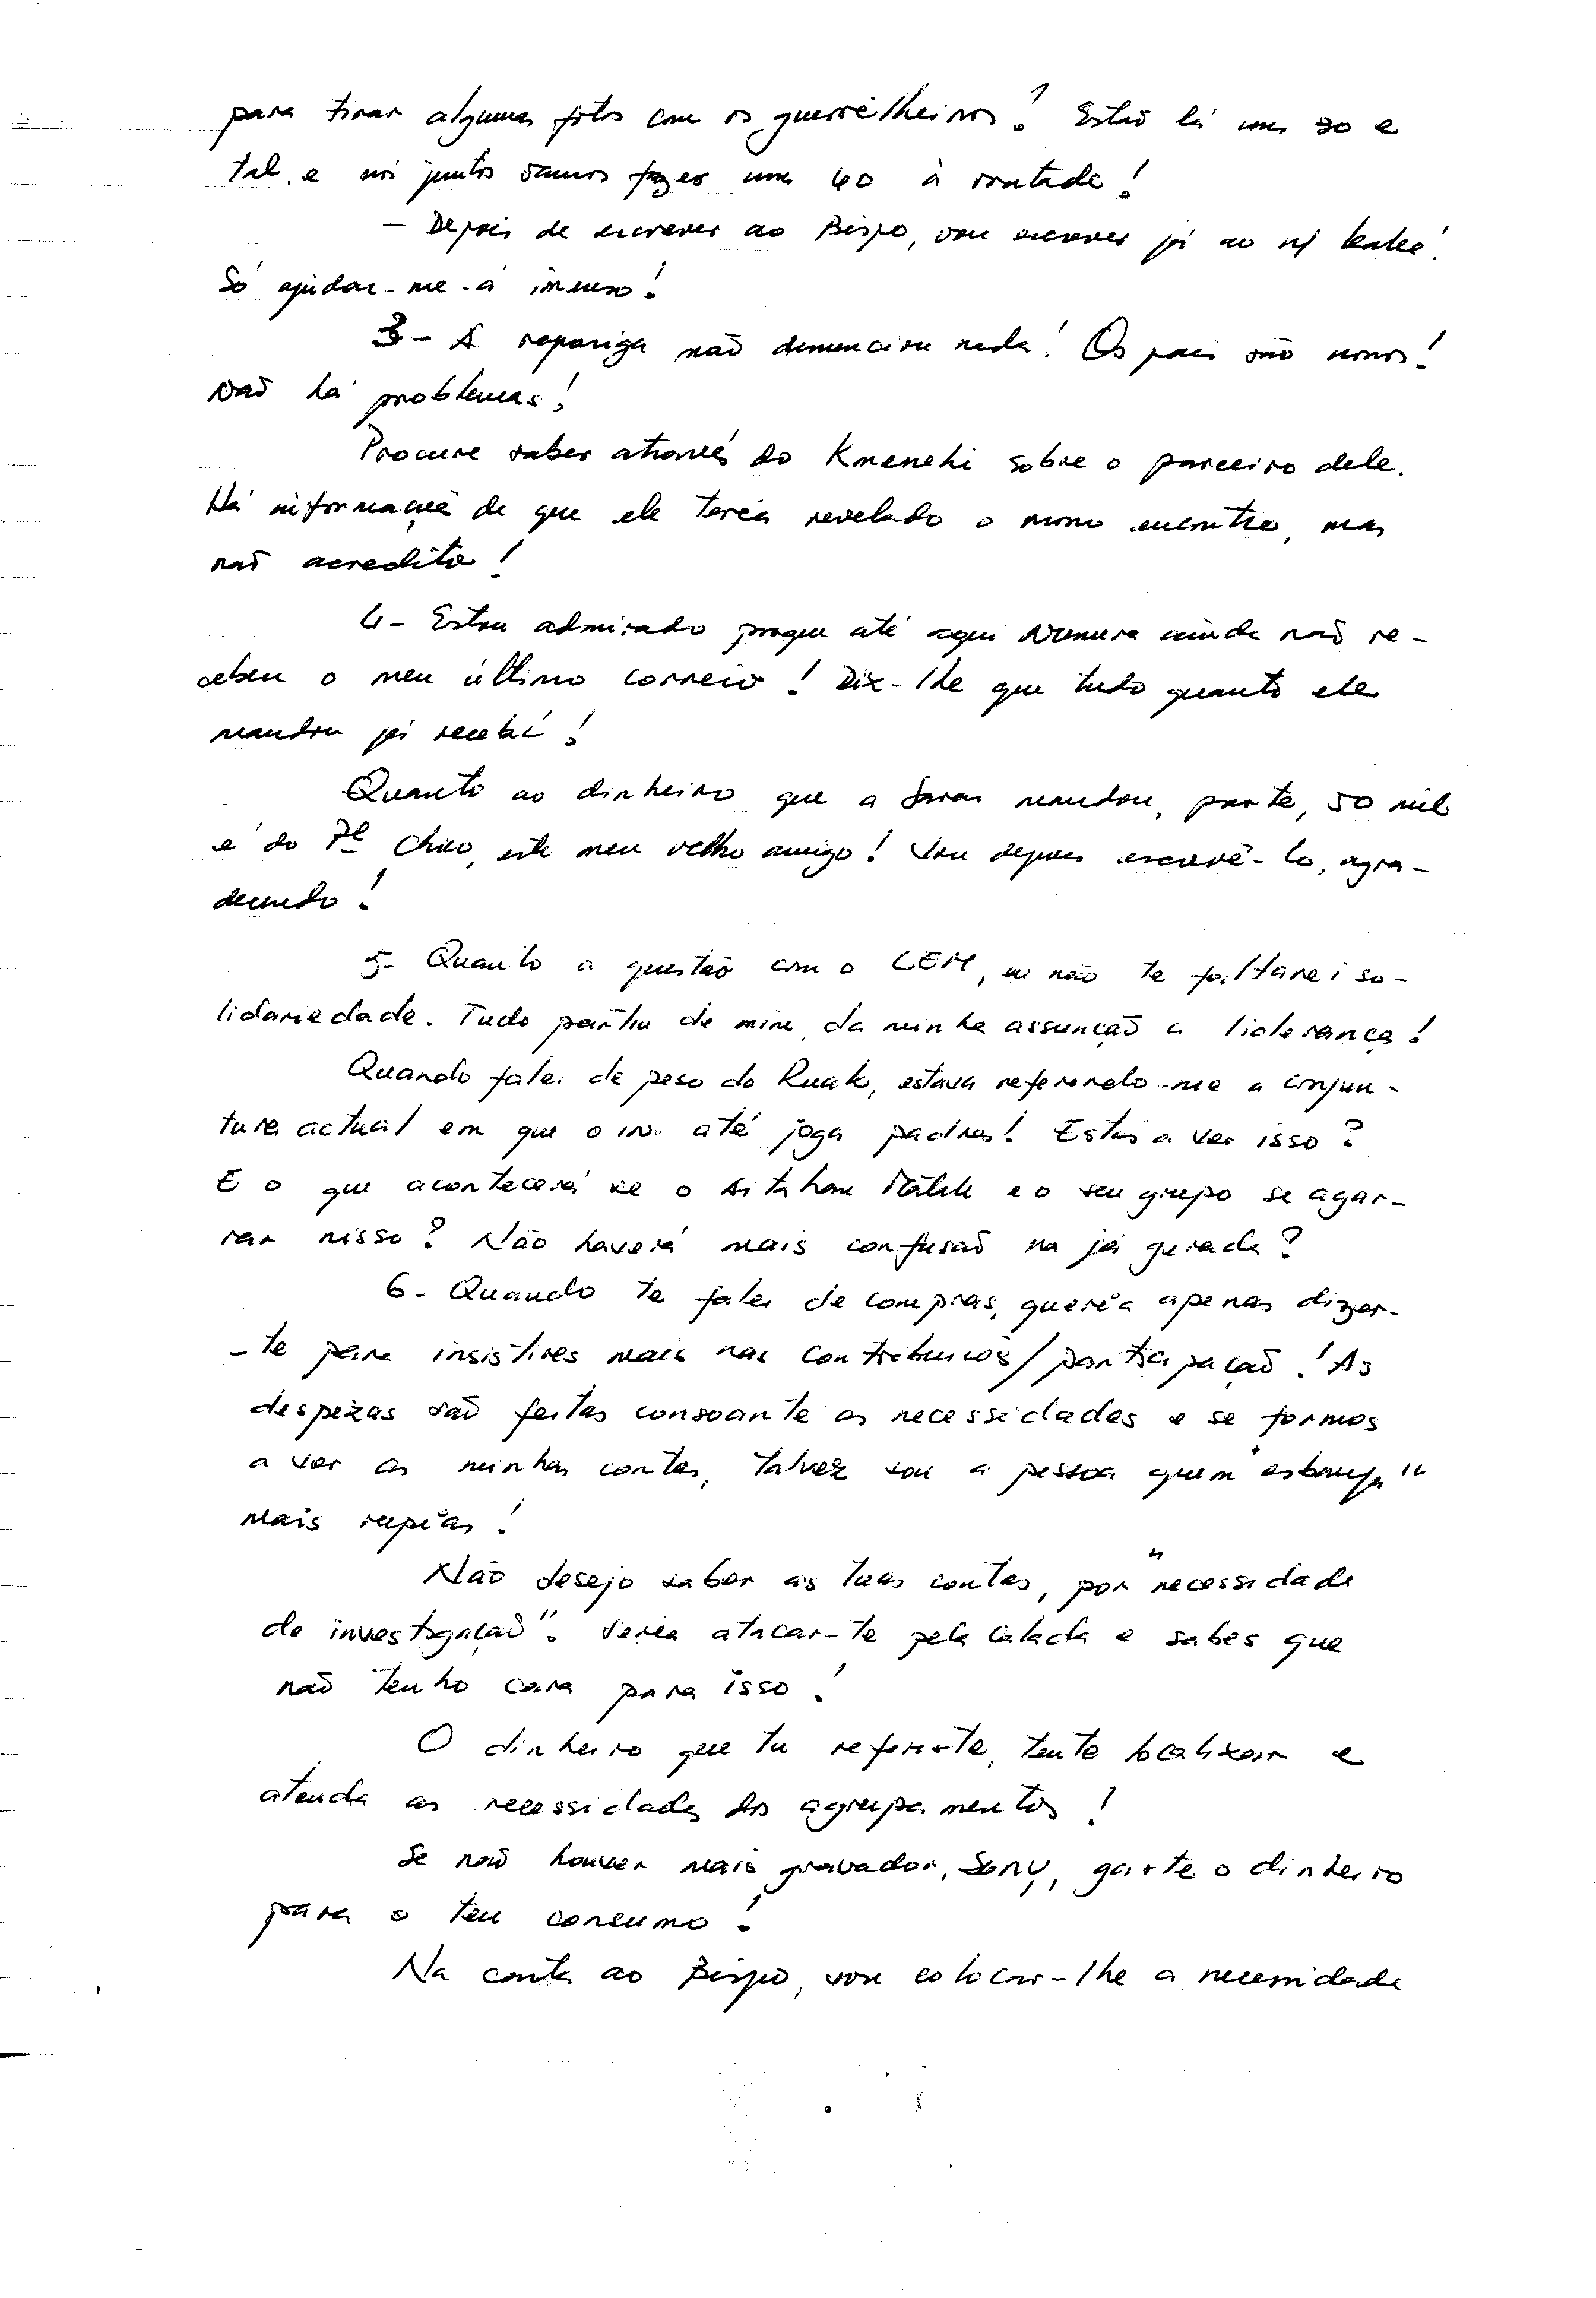 para tirar algumas fotos com os guerrilheiros? Estão lá uns 30 e
tal, e nós juntos vamos fazer uns 40 à vontade!
- Depois de escrever ao Bispo, vou escrever já ao n/
Só ajudar-me-á imenso!
3- A rapariga não denunciou nada! Os pais são nossos!
Não há problemas!
Procure saber através do Kmenehi sobre o parceiro dele.
Há informações de que ele teria revelado o nosso encontro, mas
não acredito!
4- Estou admirado porque até aqui ainda não re-
cebeu o meu último correio! Diz-lhe que tudo quanto ele
mandou já recebi!
Quanto ao dinheiro que a mandou, parte, 50 mil
é do Pe Chico, este meu velho amigo! Vou depois escrevê-lo, agra-
decendo!
5- Quanto a questão com o CEM, eu não te faltarei so-
lidariedade. Tudo partiu de mim, da minha assunção a liderança!
Quando falei de peso do Ruak, estava referindo-me a conjun-
tura actual em que o in. até joga padres! Estás a ver isso?
E o que acontecerá se o e o seu grupo se agar-
rar nisso? Não haverá mais confusão na já gerada?
6- Quando te falei de compras, queria apenas dizer-
-te para insistires mais nas contribuições/participação! As
despezas são feitas consoante as necessidades e se formos
a ver as minhas contas, talvez sou a pessoa quem "esbanja"
mais rupias!
Não desejo saber as tuas contas, por "necessidade
de investigação". Seria atacar-te pela calada e sabes que
não tenho cara para isso!
O dinheiro que tu referiste, tente localizar e
atenda as necessidades dos agrupamentos!
Se não houver mais gravador, Sony, gaste o dinheiro
para o teu consumo!
Na carta ao Bispo, vou colocar-lhe a necessidade